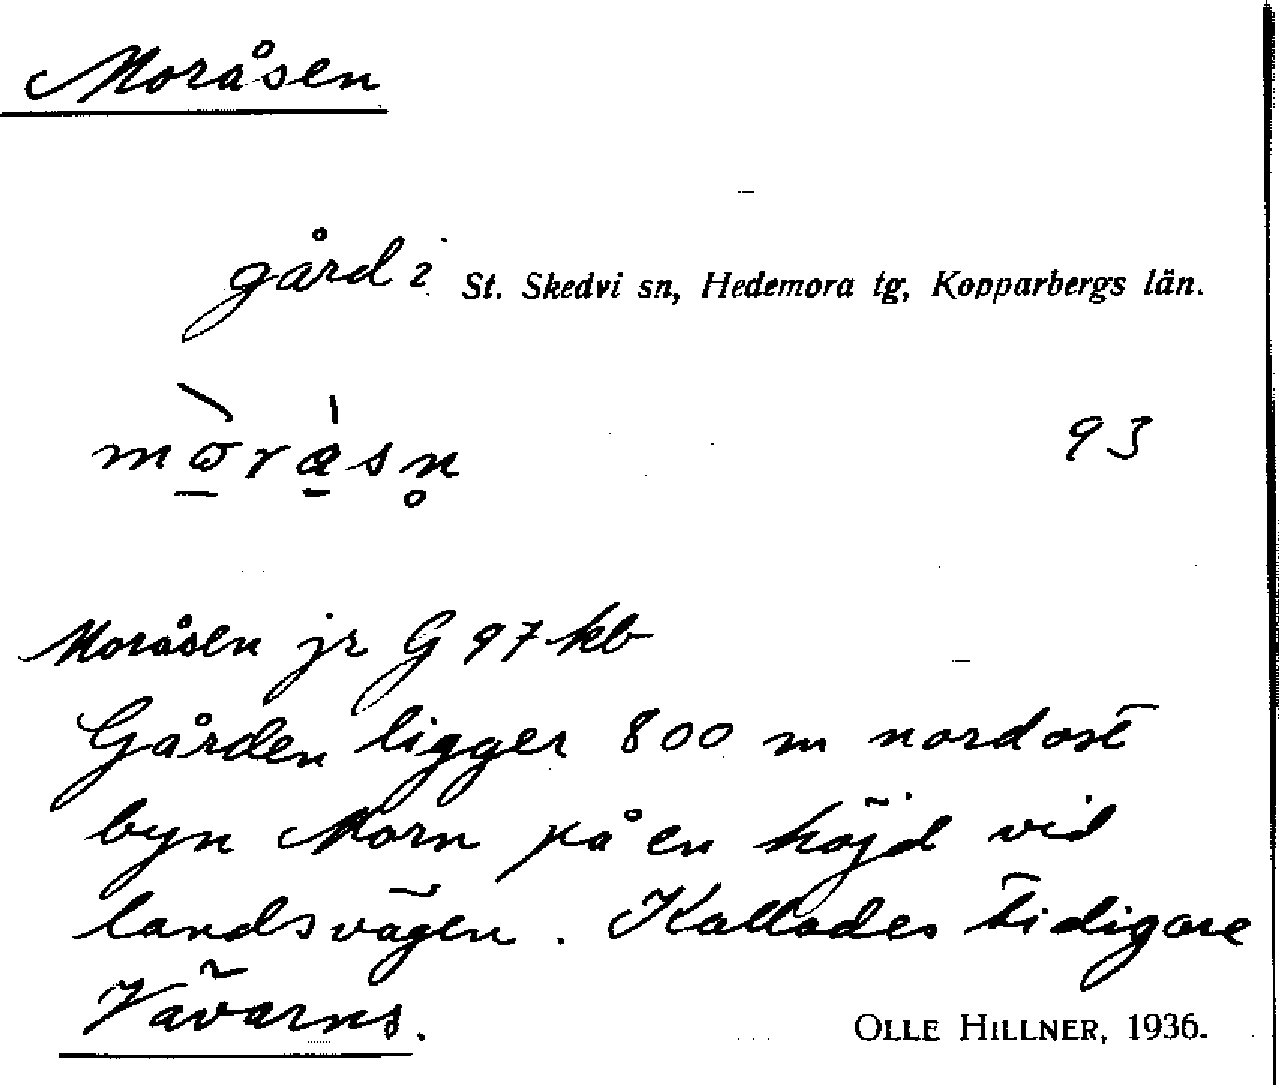 Moråsen
gård i St. Skedvi sn, Hedemora tg, Kopparbergs län.
93
Moråsen jr G 97 kb
Gården ligger 800 m nordost
byn Morn på en höjd vid
landsvägen. Kallades tidigare
Vävarns.
OLLE HILLNER, 1936.